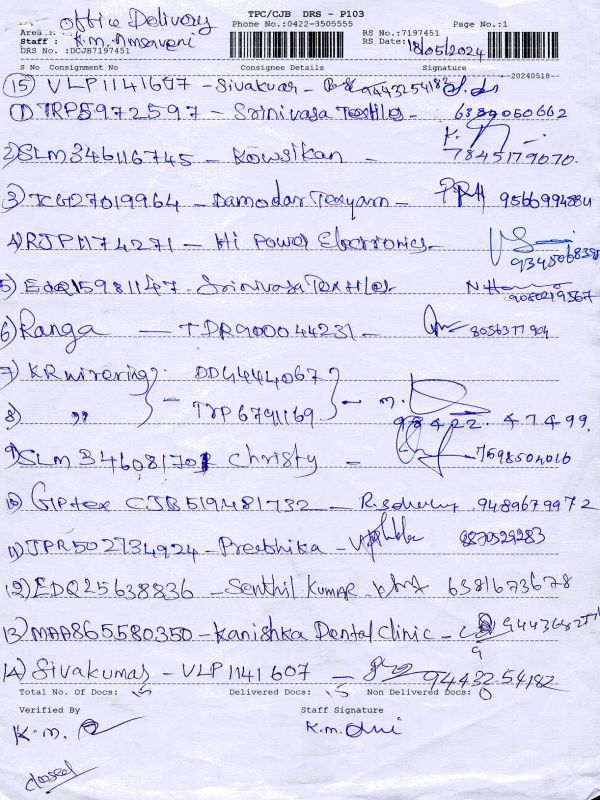 TPC/CJB DRS - P103
office Delivery
Phone No.:0422-3505555
Page No.:1
Area
RS No.:7197451
Staff : K.M. Amsaveni
RS Date: 18/05/2024
DRS No.:DCJB7197451
S No Consignment No Consignee Details Signature
--20240518--
15) VLP1141607 - Sivakumar - 9443254182
1) TRP5972597 - Srinivasa Textiles - 6389050662
2) SLM346116745 - Kowsikan - 7845179070.
3) TCG127019964 - Damodar 9566994884
4) RJP11174271 - Hi Power Electronics -
5) EDQ15981147 - Srinivasa Textiles
6) Ranga - TDR900044231 - 8056377904
7) KR wirering: DDG4444067
8) ,, TVP6791169 - 98422. 47499.
9) SLM346081701 Christy - 7598504016
10) Giptex CJB519481732 - 9489679972
11) JPR502734924 - Preethika - 8870529283
12) EDQ25638836 - Senthil Kumar - 6381673678
13) MAA865580350 - Kanishka Dental Clinic -
14) Sivakumar - VLP1141607 - 9443254182
Total No. Of Docs: 15 Delivered Docs: 15 Non Delivered Docs: 0
Verified By Staff Signature
K.M. K.M.
closed